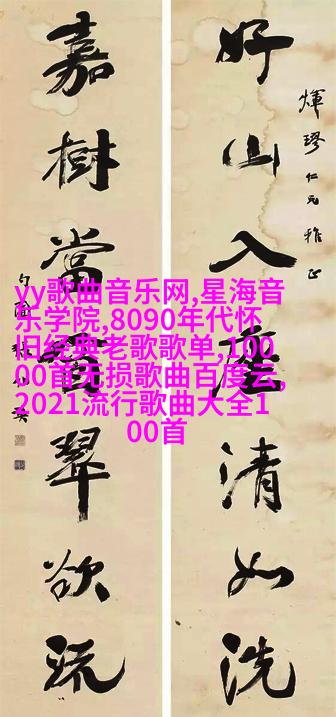 煇璆仁兄雅正
好山入座清如洗
嘉樹當翠欲流
yy歌曲音乐网,星海音
乐学院,8090年代怀
旧经典老歌歌单,100
00首无损歌曲百度云,
2021流行歌曲大全1
00首